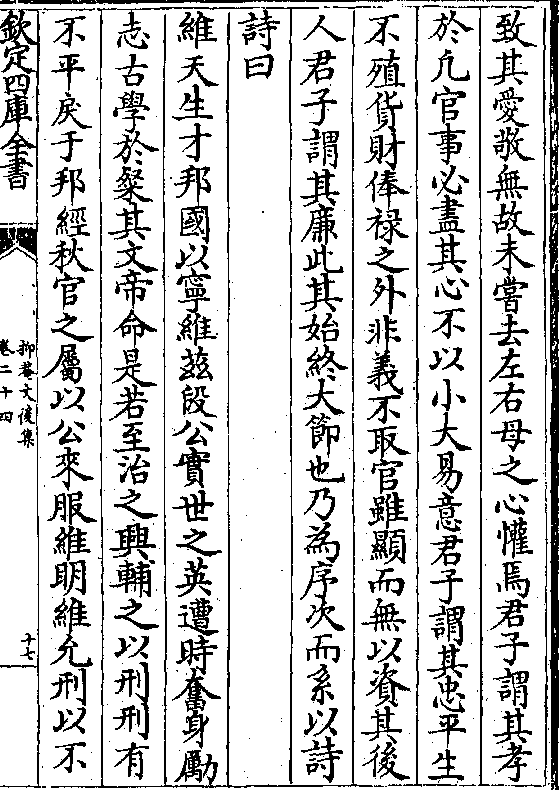 致其愛敬無故未嘗去左右母之心懽焉君子謂其孝
於凢官事必盡其心不以小大易意君子謂其忠平生
不殖貨財俸禄之外非義不取官雖顯而無以資其後
人君子謂其廉此其始終大節也乃為序次而系以詩
詩曰
維天生才邦國以寧維兹段公實世之英遭時奮身勵
志古學於粲其文帝命是若至治之興輔之以刑刑有
不平戾于邦經秋官之屬以公來服維明維允刑以不
欽定四庫全書
抑菴文後集
卷二十四
十七